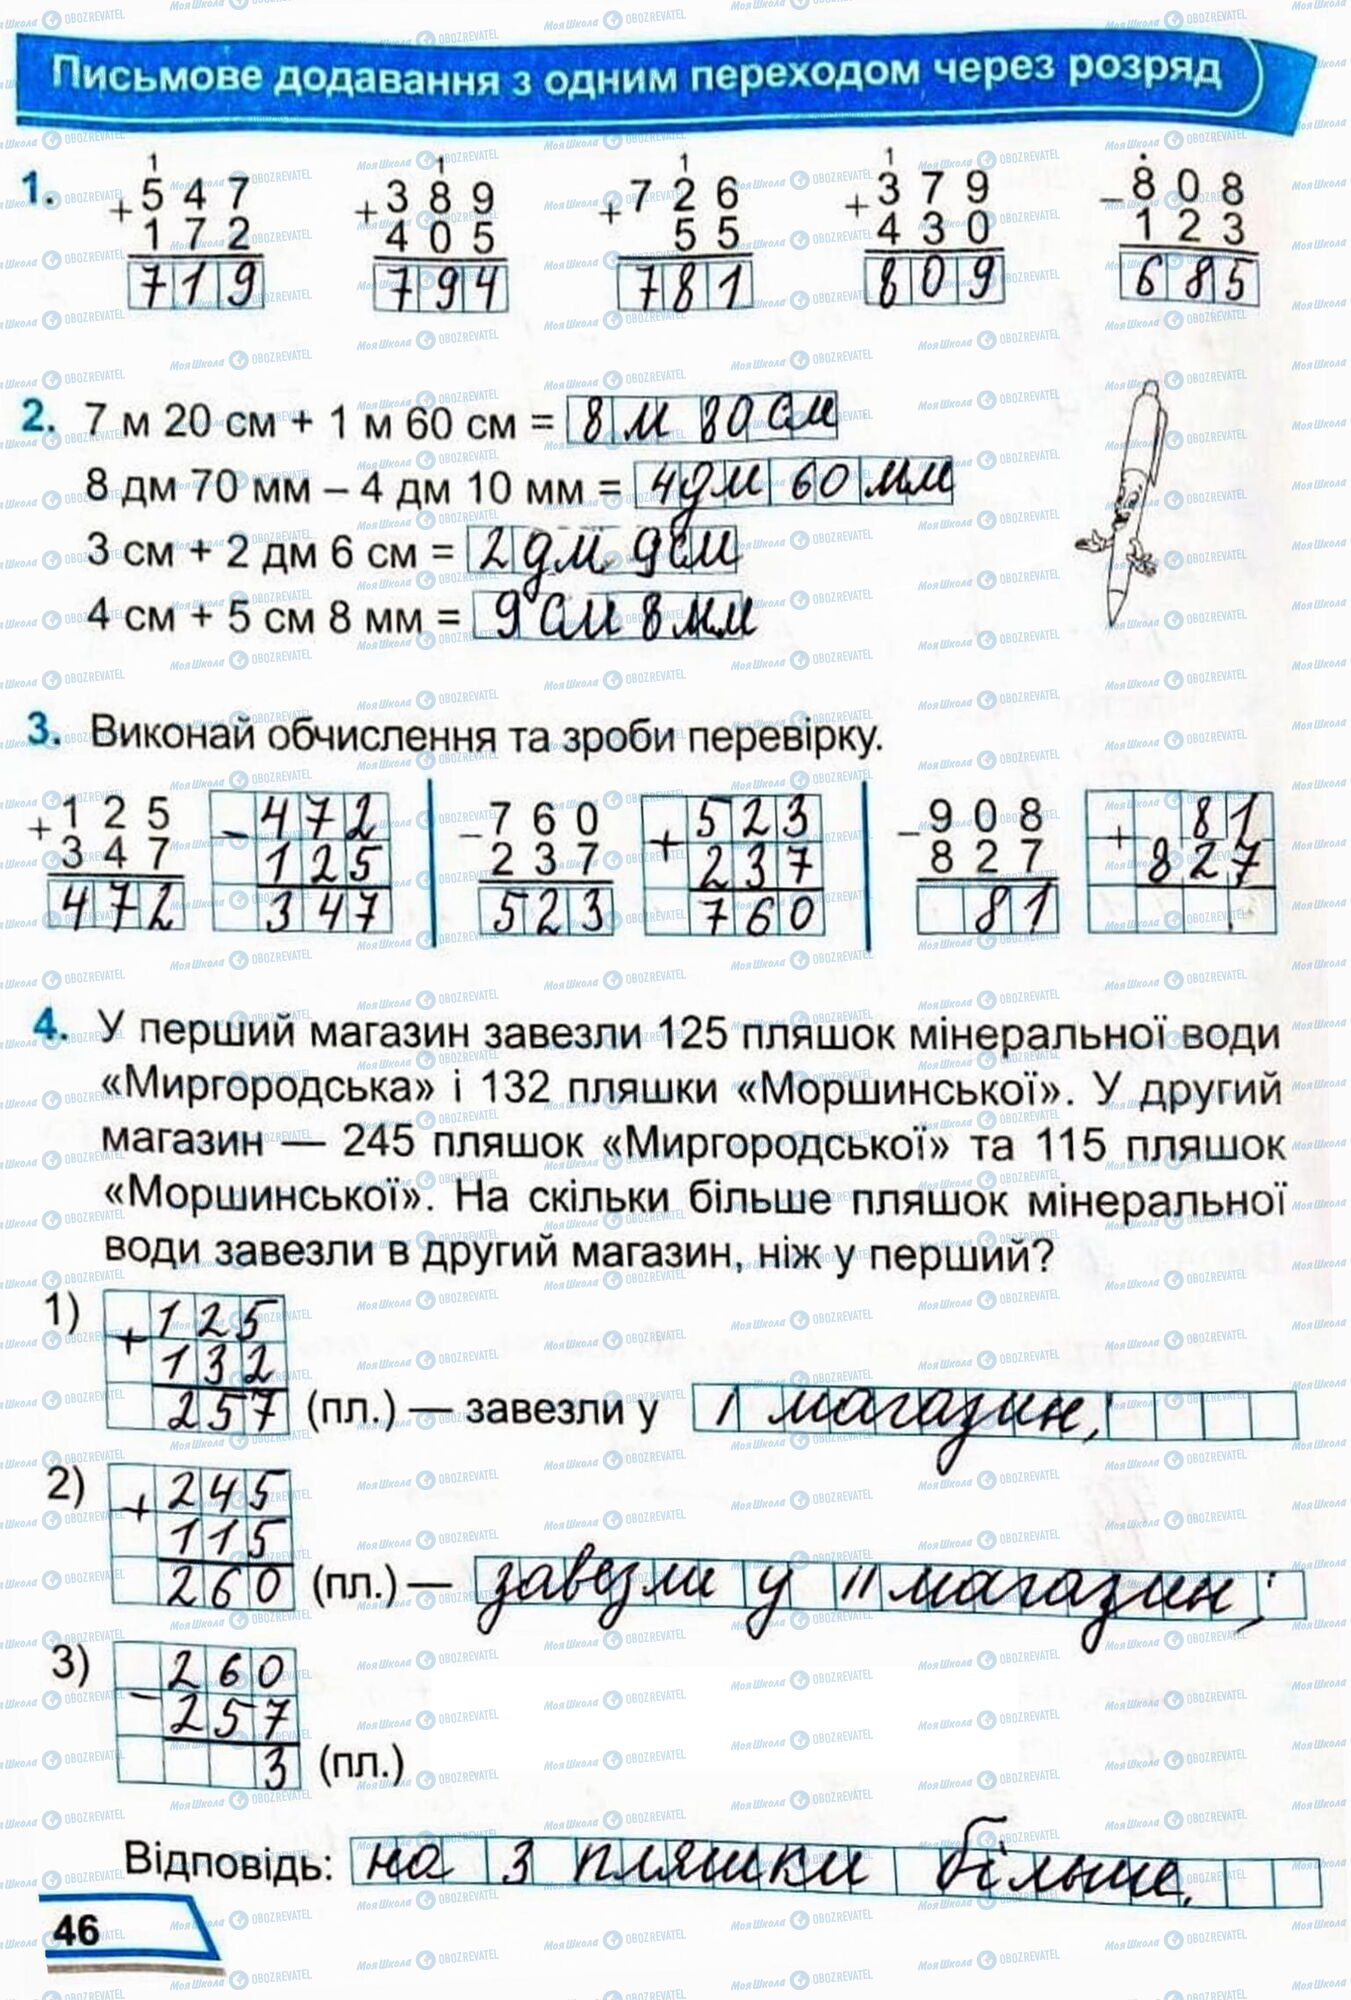 Письмове додавання з одним переходом через розряд
1.
1 1 1 1
+ 5 4 7 + 3 8 9 + 7 2 6 + 3 7 9 − 8 0 8
1 7 2 4 0 5 5 5 4 3 0 1 2 3
7 1 9 7 9 4 7 8 1 8 0 9 6 8 5
2. 7 м 20 см + 1 м 60 см = 8 м 80 см
8 дм 70 мм – 4 дм 10 мм = 4дм 60 мм
3 см + 2 дм 6 см = 2 дм 9см
4 см + 5 см 8 мм = 9 см 8 мм
3. Виконай обчислення та зроби перевірку.
+ 1 2 5 − 4 7 2 − 7 6 0 + 5 2 3 − 9 0 8 + 8 1
3 4 7 1 2 5 2 3 7 2 3 7 8 2 7 8 2 7
4 7 2 3 4 7 5 2 3 7 6 0 8 1
4. У перший магазин завезли 125 пляшок мінеральної води
«Миргородська» і 132 пляшки «Моршинської». У другий
магазин — 245 пляшок «Миргородської» та 115 пляшок
«Моршинської». На скільки більше пляшок мінеральної
води завезли в другий магазин, ніж у перший?
1) + 1 2 5
1 3 2
2 5 7 (пл.) — завезли у I магазин,
2) + 2 4 5
1 1 5
2 6 0 (пл.) — завезли у II магазин;
3) − 2 6 0
2 5 7
3 (пл.)
Відповідь: на 3 пляшки більше.
46
МояШкола OBOZREVATEL